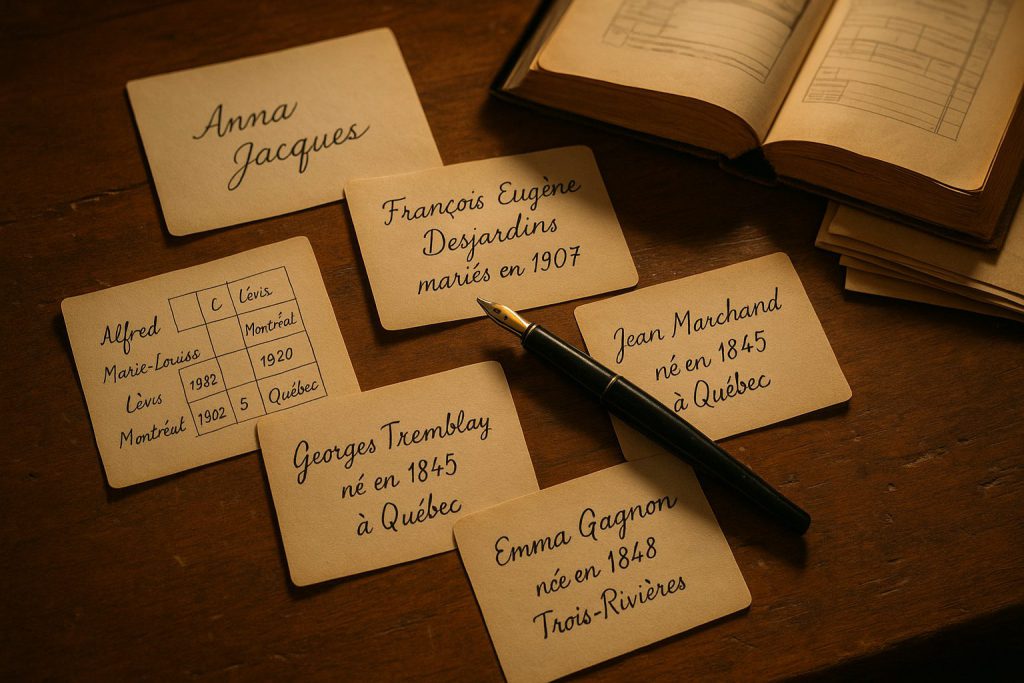 Anna
Jacques
François Eugène
Desjardins
mariés en 1907
Alfred
C Lévis
Marie-Louiss
Montréal
Lèvis
1982 1920
Montréat
1902 5 Québec
Jean Marchand
né en 1845
à Québec
Georges Tremblay
né en 1845
à Québec
Emma Gagnon
née en 1848
Trois-Rivières